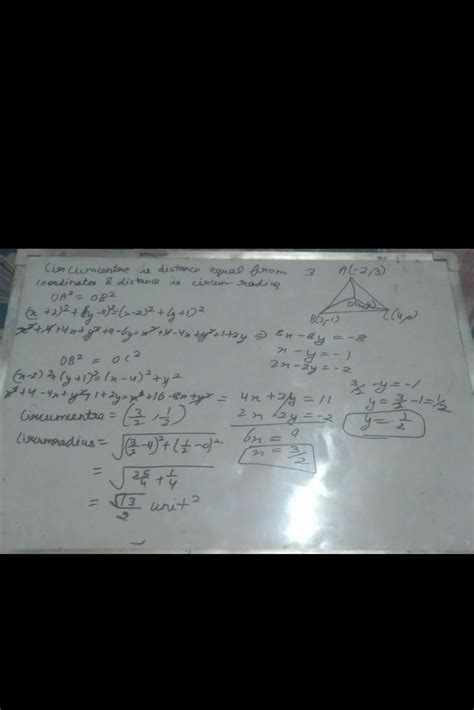 Circumcentre is distance equal from 3 A(-2,3)
coordinates & distance is circum radius
OA² = OB²
(x+2)²+(y-3)²=(x-2)²+(y+1)²
x²+4+4x+y²+9-6y=x²+4-4x+y²+1+2y ⇒ 8x-8y=-8
x-y=-1
2x-2y=-2
B(2,-1)
OB² = OC²
(x-2)²+(y+1)²=(x-4)²+y²
x²+4-4x+y²+1+2y=x²+16-8x+y² = 4x+2y=11
2x-2y=-2
6x=9
x=3/2
3/2-y=-1
y=3/2-1=1/2
y=1/2
Circumcentre=(3/2,1/2)
Circumradius=√(3/2-4)²+(1/2-0)²
=√25/4+1/4
=√13/2 unit²